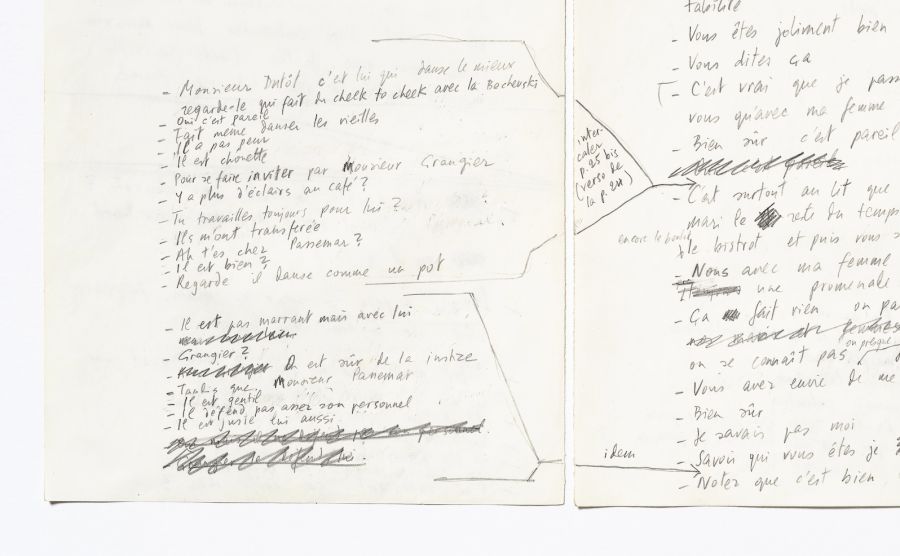 - Monsieur Dutôt c'est lui qui danse le mieux
regarde-le qui fait du cheek to cheek avec la Bochenski
- Oui c'est pareil
- Fait même danser les vieilles
- Il a pas peur
- Il est chouette
- Pour se faire inviter par Monsieur Grangier
- Y a plus d'éclairs au café ?
- Tu travailles toujours pour lui ?
- Ils m'ont transférée
- Ah t'es chez Passemar ?
- Il est bien ?
- Regarde il danse comme un pot
- Il est pas marrant mais avec lui
- Grangier ?
- On est sûr de la justice
- Tandis que Monsieur Passemar
- Il est gentil
- Il défend pas assez son personnel
- Il est juste lui aussi
inter-
caler
p. 25 bis
(verso de
la p. 24)
idem
- Vous êtes joliment bien
- Vous dites ça
- C'est vrai que je
vous qu'avec ma femme
- Bien sûr c'est pareil
- C'est surtout au lit que
mari le reste du temps
encore le
le bistrot et puis vous
- Nous avec ma femme
une promenade
- Ça fait rien on
on presque
on se connaît pas
- Vous avez envie de me
- Bien sûr
- Je savais pas moi
- Savoir qui vous êtes je
- Notez que c'est bien